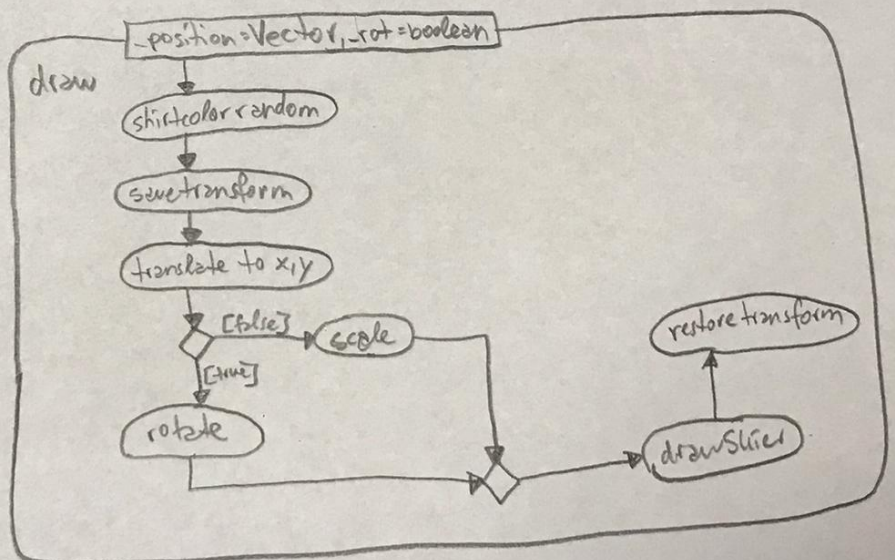 _position=Vector, _rot=boolean
draw
shirtcolor random
savetransform
translate to x,y
[false]
scale
[true]
rotate
restore transform
drawSkier